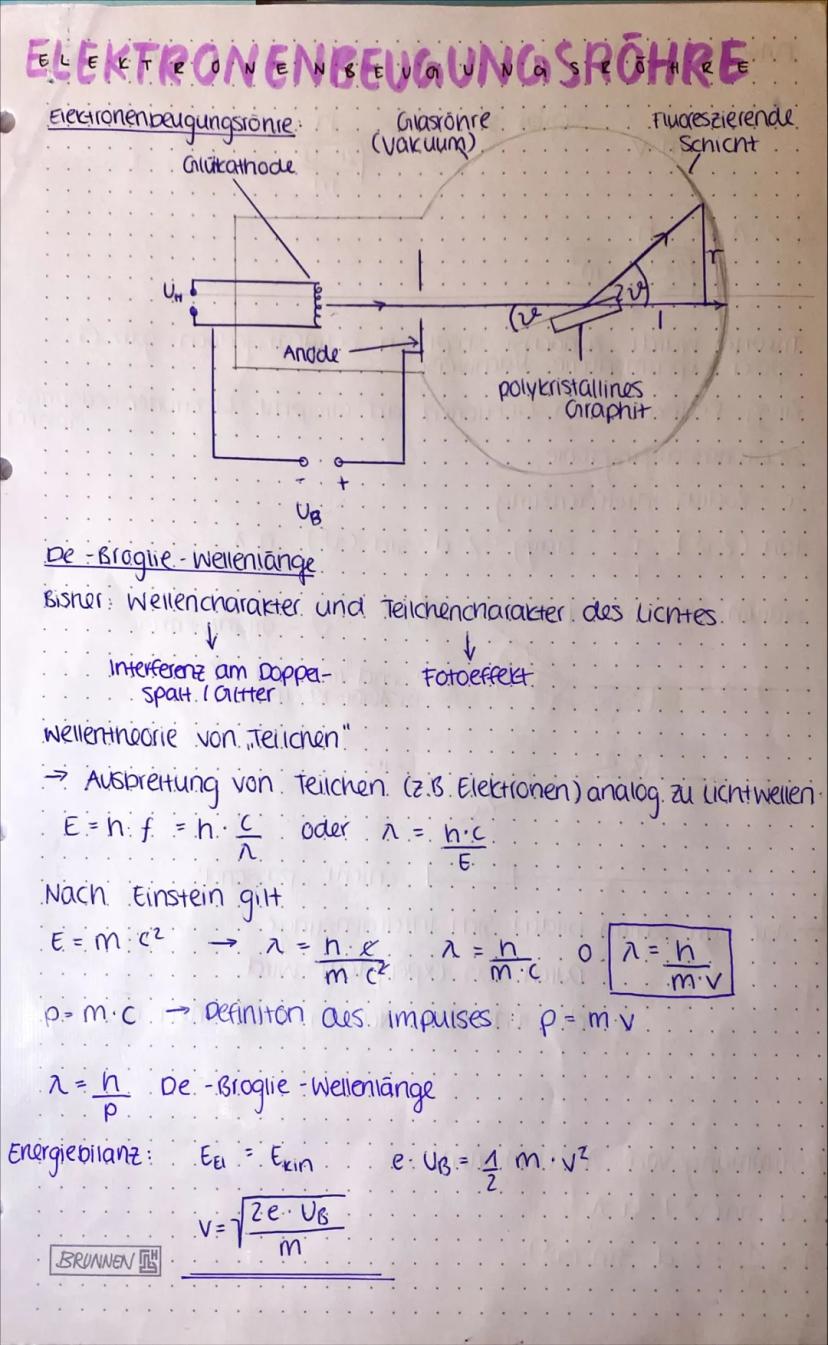 ELEKTRONENBEUGUNGSRÖHRE
Elektronenbeugungsröhre:
Glasröhre
(Vakuum)
Fluoreszierende
Schicht
Glükathode
U_H
r
2ϑ
ϑ
l
Anode
polykristallines
Graphit
- +
U_B
De-Broglie-Wellenlänge
Bisher: Wellencharakter und Teilchencharakter des Lichtes
↓ ↓
Interferenz am Doppel-
spalt / Gitter
Fotoeffekt
Wellentheorie von „Teilchen"
→ Ausbreitung von Teilchen (z.B. Elektronen) analog zu Lichtwellen
E = h · f = h · c/λ oder λ = h·c/E
Nach Einstein gilt
E = m · c² → λ = h · c / m c² λ = h / m · c o λ = h / m·v
p = m · c → Definiton des Impulses: p = m·v
λ = h/p De-Broglie-Wellenlänge
Energiebilanz: E_El = E_kin e · U_B = 1/2 m · v²
v = √(2e · U_B / m)
BRUNNEN